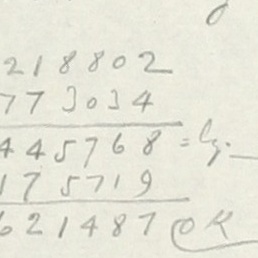 218802
773034
445768 = lg.
175719
621487 OK